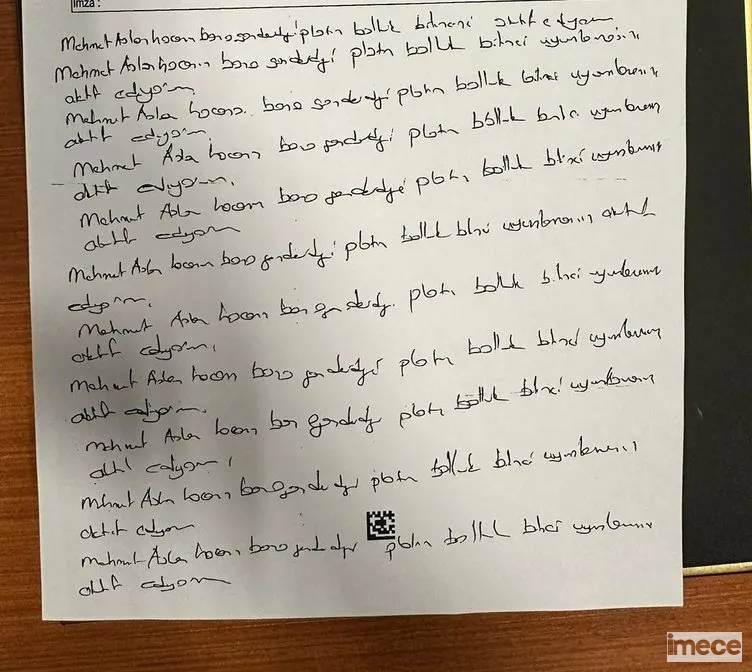 İmza :
Mehmet Aslan hocam bana gönderdiği platin bolluk bilincini aktif ediyorum
Mehmet Aslan hocanın bana gönderdiği platin bolluk bilinci uyumlamasını
aktif ediyorum
Mehmet Aslan hocanın bana gönderdiği platin bolluk bilinci uyumlamasını
aktif ediyorum.
Mehmet Aslan hocanın bana gönderdiği platin bolluk bilinci uyumlamasını
aktif ediyorum.
Mehmet Aslan hocanın bana gönderdiği platin bolluk bilinci uyumlamasını
aktif ediyorum
Mehmet Aslan hocanın bana gönderdiği platin bolluk bilinci uyumlamasını aktif
ediyorum.
Mehmet Aslan hocanın bana gönderdiği platin bolluk bilinci uyumlamasını
aktif ediyorum.
Mehmet Aslan hocanın bana gönderdiği platin bolluk bilinci uyumlamasını
aktif ediyorum.
Mehmet Aslan hocanın bana gönderdiği platin bolluk bilinci uyumlamasını
aktif ediyorum.
Mehmet Aslan hocanın bana gönderdiği platin bolluk bilinci uyumlamasını
aktif ediyorum
Mehmet Aslan hocanın bana gönderdiği platin bolluk bilinci uyumlamasını
aktif ediyorum
imece